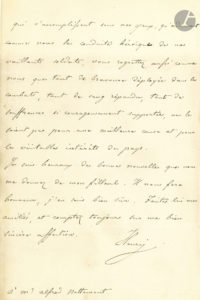 qui s'accomplissent sous nos yeux, qu'admirant
comme vous les conduites héroïques de nos
vaillants soldats, vous regrettez aussi comme
vous que tant de bravoure déployée dans les
combats, tant de sang répandu, tant de
souffrances si courageusement supportées, ne le
soient pas pour une meilleure cause et pour
les véritables intérêts du pays.
Je suis heureux des bonnes nouvelles que vous
me donnez de mon filleul. Il vous fera
honneur, j'en suis bien sûr. Faites lui mes
amitiés, et comptez toujours sur ma bien
sincère affection.
Henri
à Mr alfred Nettement